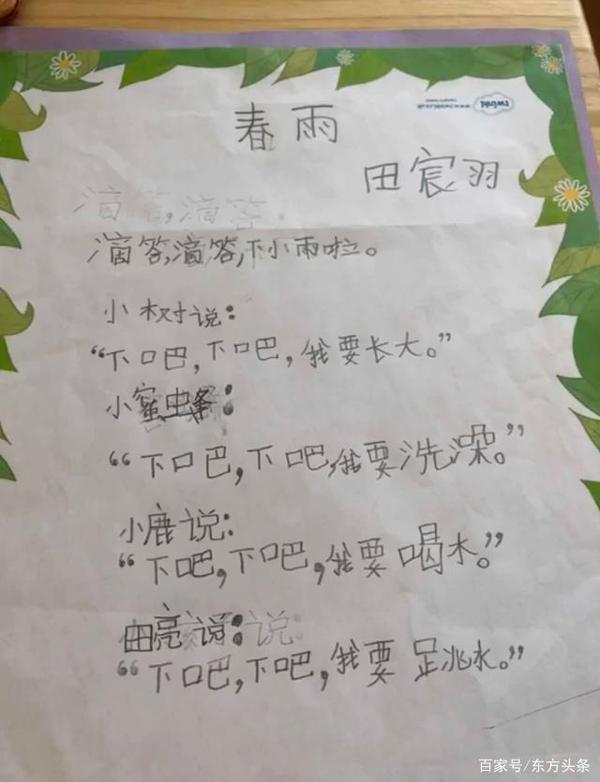 twinkl
www.twinkl.co.uk
春雨
田宸羽
滴答,滴答,
滴答,滴答,下小雨啦。
小树说:
“下吧,下吧,我要长大。”
小蜜虫条:
“下吧,下吧,我要洗澡。”
小鹿说:
“下吧,下吧,我要喝水。”
田亮说:说:
“下吧,下吧,我要跳水。”
百家号/东方头条